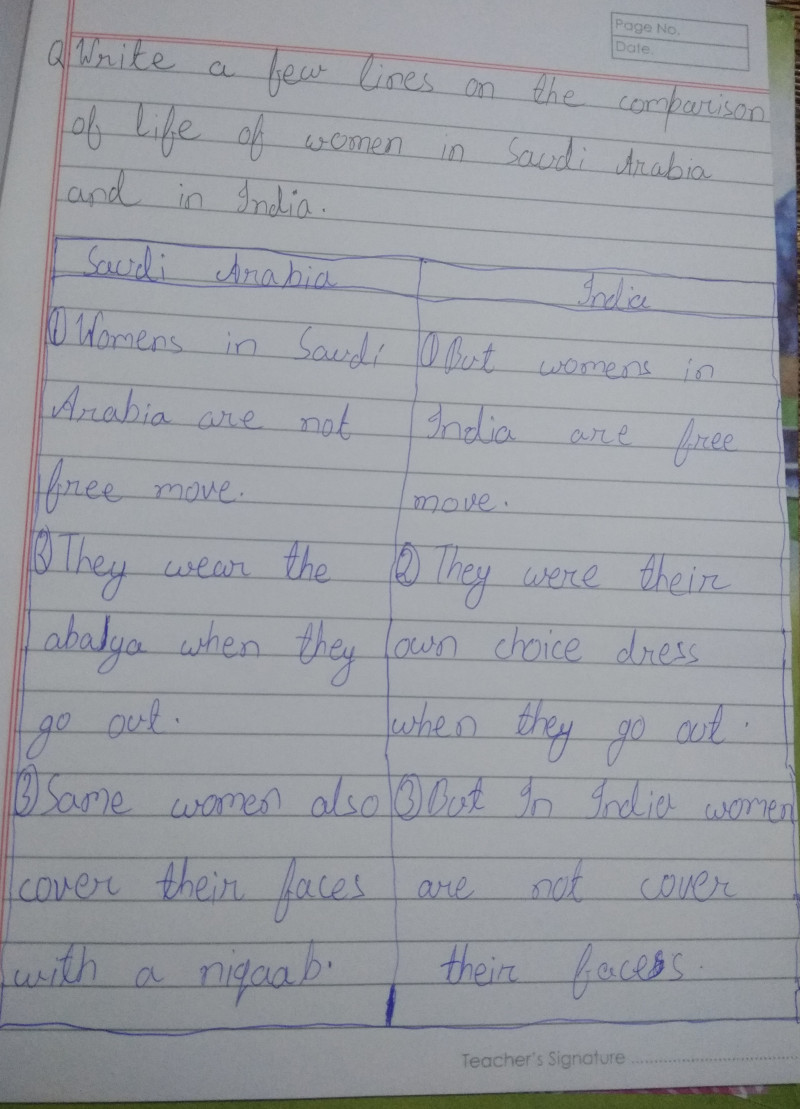 Page No.
Date.
Q Write a few lines on the comparison
of life of women in Saudi Arabia
and in India.
Saudi Arabia
① Womens in Saudi
Arabia are not
free move.
② They wear the
abalya when they
go out.
③ Some women also
cover their faces
with a niqaab.
India
① But womens in
India are free
move.
② They were their
own choice dress
when they go out.
③ But In India women
are not cover
their faces.
Teacher's Signature